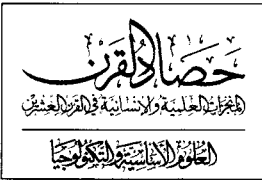 حصاد القرن
المنجزات العلمية والإنسانية في القرن العشرين
العلوم الأساسية والتكنولوجيا